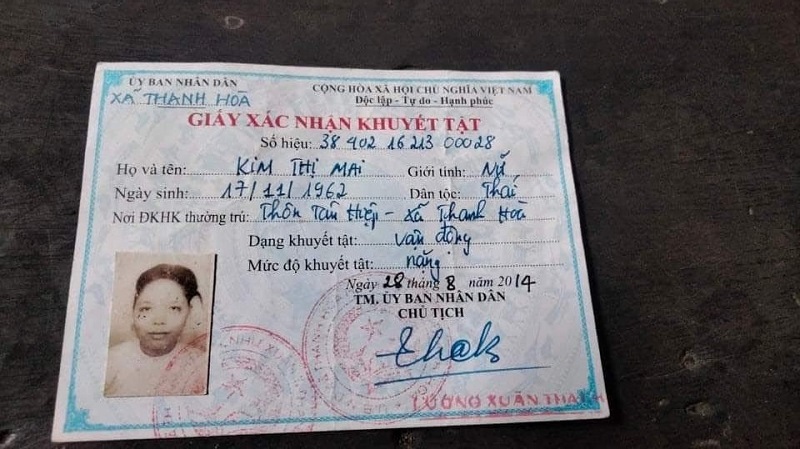 ỦY BAN NHÂN DÂN
XÃ THANH HÒA
CỘNG HÒA XÃ HỘI CHỦ NGHĨA VIỆT NAM
Độc lập - Tự do - Hạnh phúc
GIẤY XÁC NHẬN KHUYẾT TẬT
Số hiệu: 38 402 16213 00028
Họ và tên: KIM THỊ MAI Giới tính: Nữ
Ngày sinh: 17/11/1962 Dân tộc: Thái
Nơi ĐKHK thường trú: Thôn Tân Hiệp - Xã Thanh Hoà
Dạng khuyết tật: vận động
Mức độ khuyết tật: nặng
Ngày 28 tháng 8 năm 2014
TM. ỦY BAN NHÂN DÂN
CHỦ TỊCH
LƯƠNG XUÂN